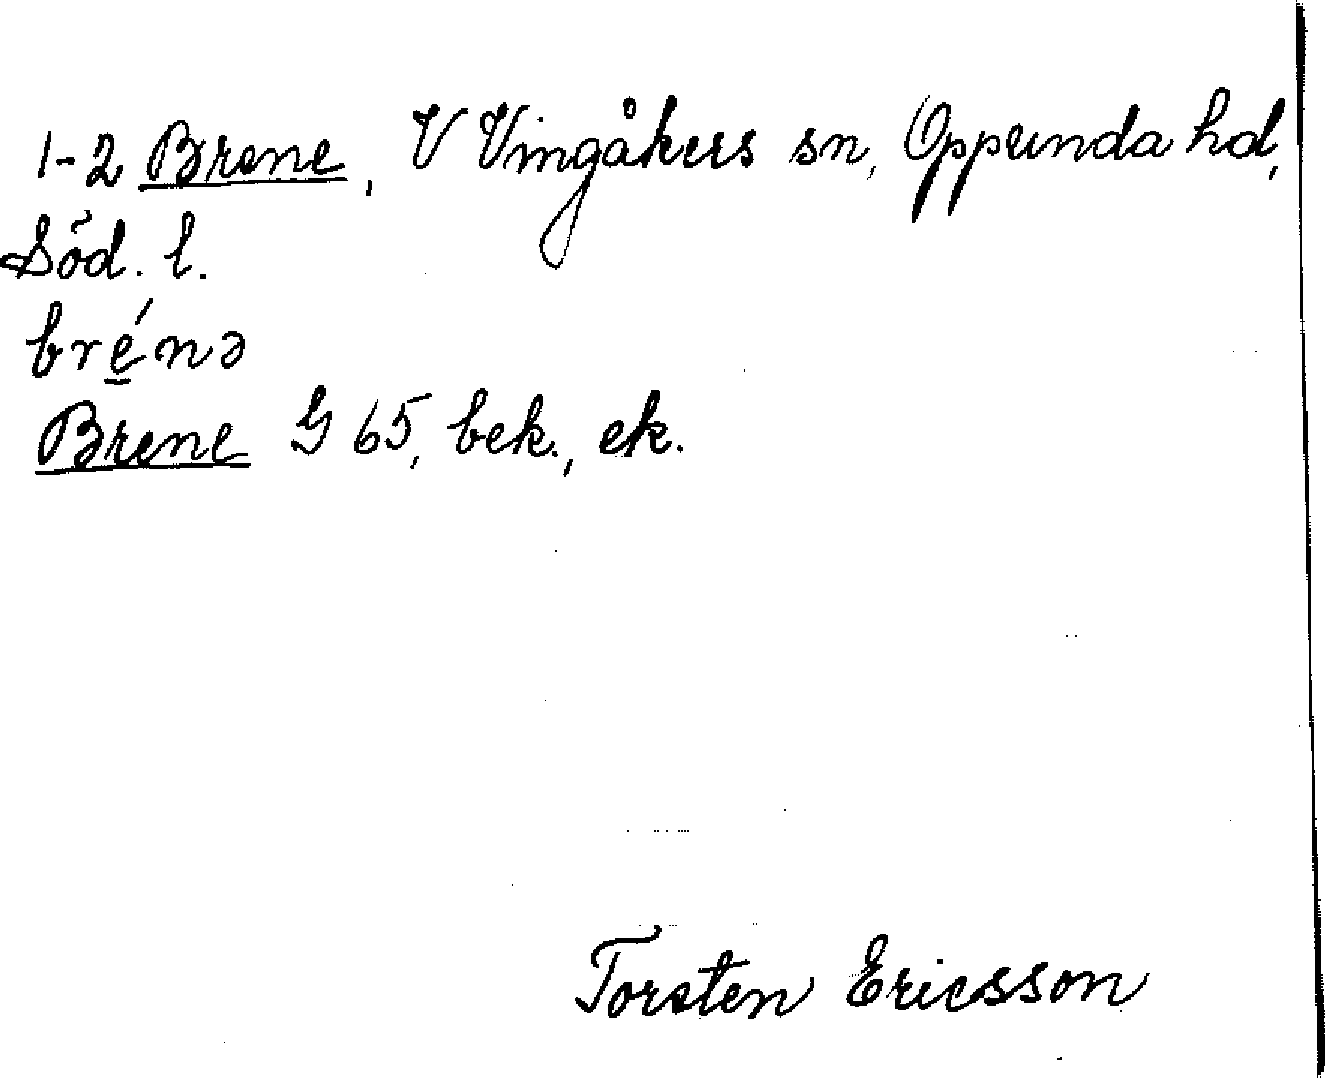 1-2 Brene, V Vingåkers sn, Oppunda hd,
Söd. l.
bré̲nə
Brene G 65, bek., ek.
Torsten Ericsson